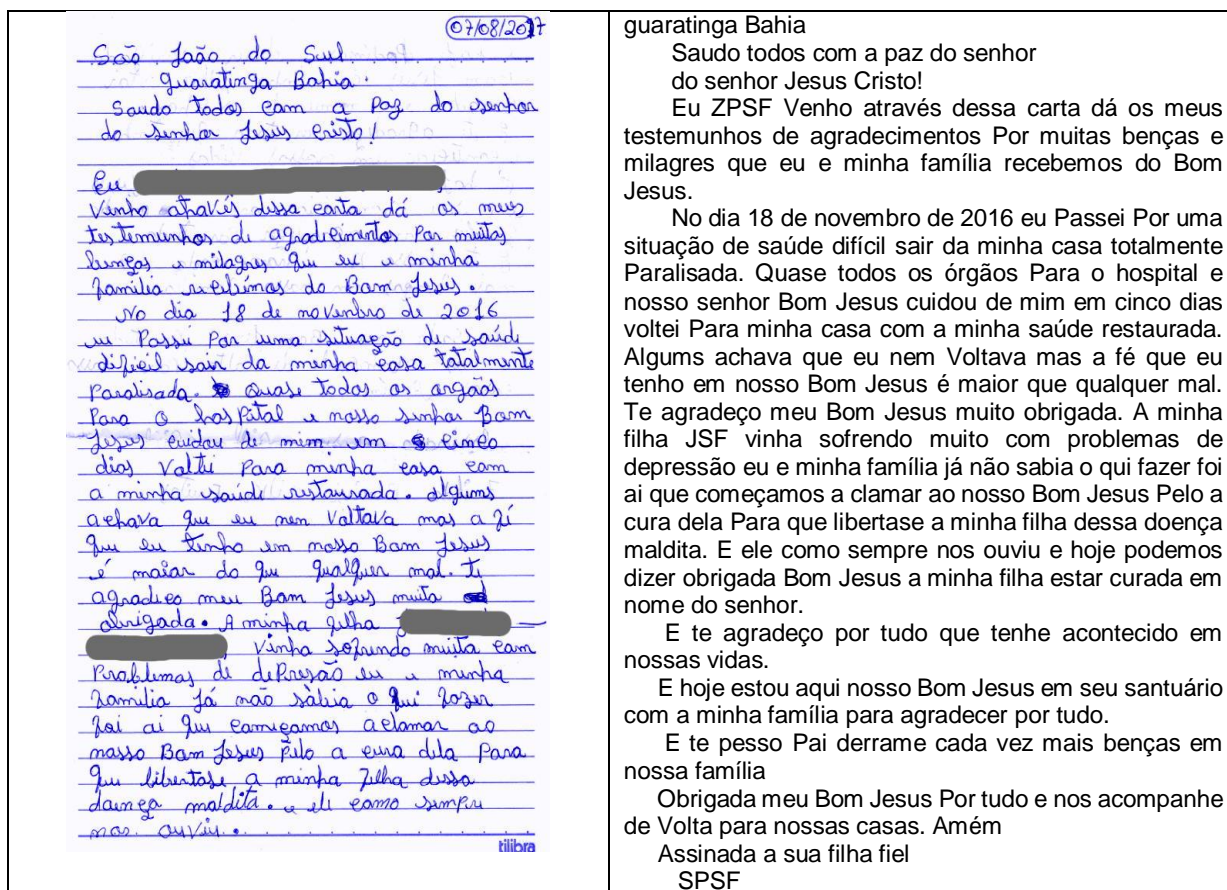 07/08/2017
São João do Sul
guaratinga Bahia.
Saudo todos com a Paz do senhor
do senhor Jesus cristo!
Eu
Venho através dessa carta dá os meus
testemunhos de agradecimentos Por muitas
benças e milagres que eu e minha
família recebimos do Bom Jesus.
No dia 18 de novenbro de 2016
eu Passei Por uma situação de saúde
dificil sair da minha casa totalmente
Paralisada. Quase todos os orgãos
Para o hosPital e nosso senhor Bom
Jesus cuidou de mim em cinco
dias Voltei Para minha casa com
a minha saúde restaurada. Algums
achava que eu nem Voltava mas a fé
que eu tenho em nosso Bom Jesus
é maior do que qualquer mal. Te
agradeço meu Bom Jesus muito
obrigada. A minha filha
Vinha sofrendo muito com
Problemas de dePresão eu e minha
família já não sabia o qui fazer
foi ai que começamos a clamar ao
nosso Bom Jesus Pelo a cura dela Para
que libertase a minha filha dessa
doença maldita. e ele como sempre
nos ouviu.
tilibra
guaratinga Bahia
Saudo todos com a paz do senhor
do senhor Jesus Cristo!
Eu ZPSF Venho através dessa carta dá os meus
testemunhos de agradecimentos Por muitas benças e
milagres que eu e minha família recebemos do Bom
Jesus.
No dia 18 de novembro de 2016 eu Passei Por uma
situação de saúde difícil sair da minha casa totalmente
Paralisada. Quase todos os órgãos Para o hospital e
nosso senhor Bom Jesus cuidou de mim em cinco dias
voltei Para minha casa com a minha saúde restaurada.
Algums achava que eu nem Voltava mas a fé que eu
tenho em nosso Bom Jesus é maior que qualquer mal.
Te agradeço meu Bom Jesus muito obrigada. A minha
filha JSF vinha sofrendo muito com problemas de
depressão eu e minha família já não sabia o qui fazer foi
ai que começamos a clamar ao nosso Bom Jesus Pelo a
cura dela Para que libertase a minha filha dessa doença
maldita. E ele como sempre nos ouviu e hoje podemos
dizer obrigada Bom Jesus a minha filha estar curada em
nome do senhor.
E te agradeço por tudo que tenhe acontecido em
nossas vidas.
E hoje estou aqui nosso Bom Jesus em seu santuário
com a minha família para agradecer por tudo.
E te pesso Pai derrame cada vez mais benças em
nossa família
Obrigada meu Bom Jesus Por tudo e nos acompanhe
de Volta para nossas casas. Amém
Assinada a sua filha fiel
SPSF